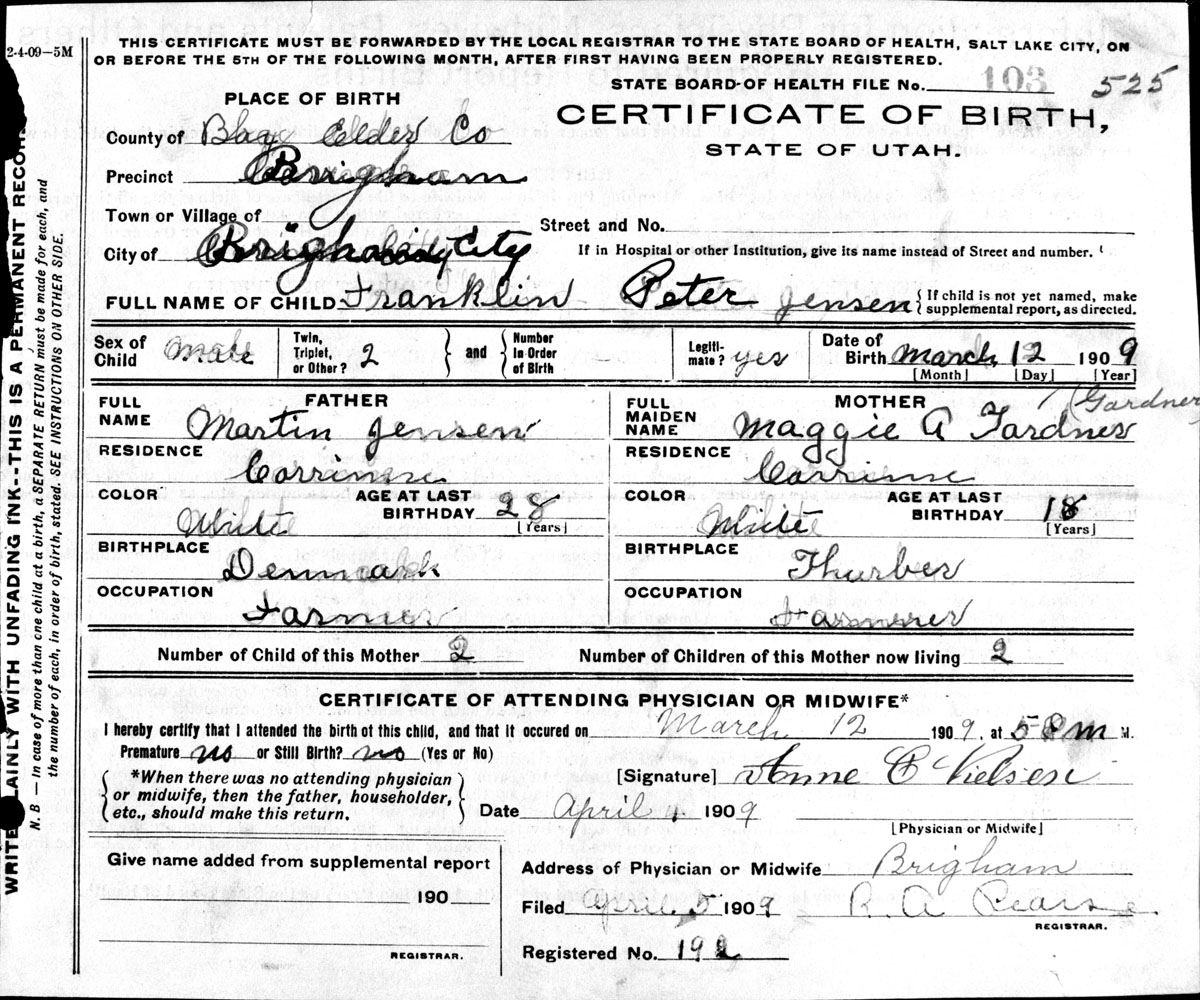 2-4-09—5M
THIS CERTIFICATE MUST BE FORWARDED BY THE LOCAL REGISTRAR TO THE STATE BOARD OF HEALTH, SALT LAKE CITY, ON
OR BEFORE THE 5TH OF THE FOLLOWING MONTH, AFTER FIRST HAVING BEEN PROPERLY REGISTERED.
STATE BOARD OF HEALTH FILE No. 103 525
PLACE OF BIRTH
CERTIFICATE OF BIRTH,
STATE OF UTAH.
County of Elder Co
Precinct Brigham
Town or Village of
Street and No.
City of Brigham City
If in Hospital or other Institution, give its name instead of Street and number.
FULL NAME OF CHILD Franklin Peter Jensen { If child is not yet named, make
supplemental report, as directed.
Sex of Child Male
Twin, Triplet, or Other? 2 } and { Number In Order of Birth
Legiti-mate? yes
Date of Birth March 12 1909
[Month] [Day] [Year]
FATHER
FULL NAME Martin Jensen
RESIDENCE Corrinne
COLOR White
AGE AT LAST BIRTHDAY 28 [Years]
BIRTHPLACE Denmark
OCCUPATION Farmer
MOTHER
(Gardner
FULL MAIDEN NAME Maggie A Gardner
RESIDENCE Corrinne
COLOR White
AGE AT LAST BIRTHDAY 18 [Years]
BIRTHPLACE Thurber
OCCUPATION
Number of Child of this Mother 2 Number of Children of this Mother now living 2
CERTIFICATE OF ATTENDING PHYSICIAN OR MIDWIFE*
I hereby certify that I attended the birth of this child, and that it occured on March 12 1909, at 5 P m M.
Premature no or Still Birth? no (Yes or No)
{ *When there was no attending physician
or midwife, then the father, householder,
etc., should make this return. }
[Signature] Anne C Nielsen
Date April 4 1909
[Physician or Midwife]
Give name added from supplemental report
190
REGISTRAR.
Address of Physician or Midwife Brigham
Filed April 5 1909 R. A Pearse
REGISTRAR.
Registered No. 192
WRITE PLAINLY WITH UNFADING INK--THIS IS A PERMANENT RECORD
N. B.—In case of more than one child at a birth, a SEPARATE RETURN must be made for each, and
the number of each, in order of birth, stated. SEE INSTRUCTIONS ON OTHER SIDE.